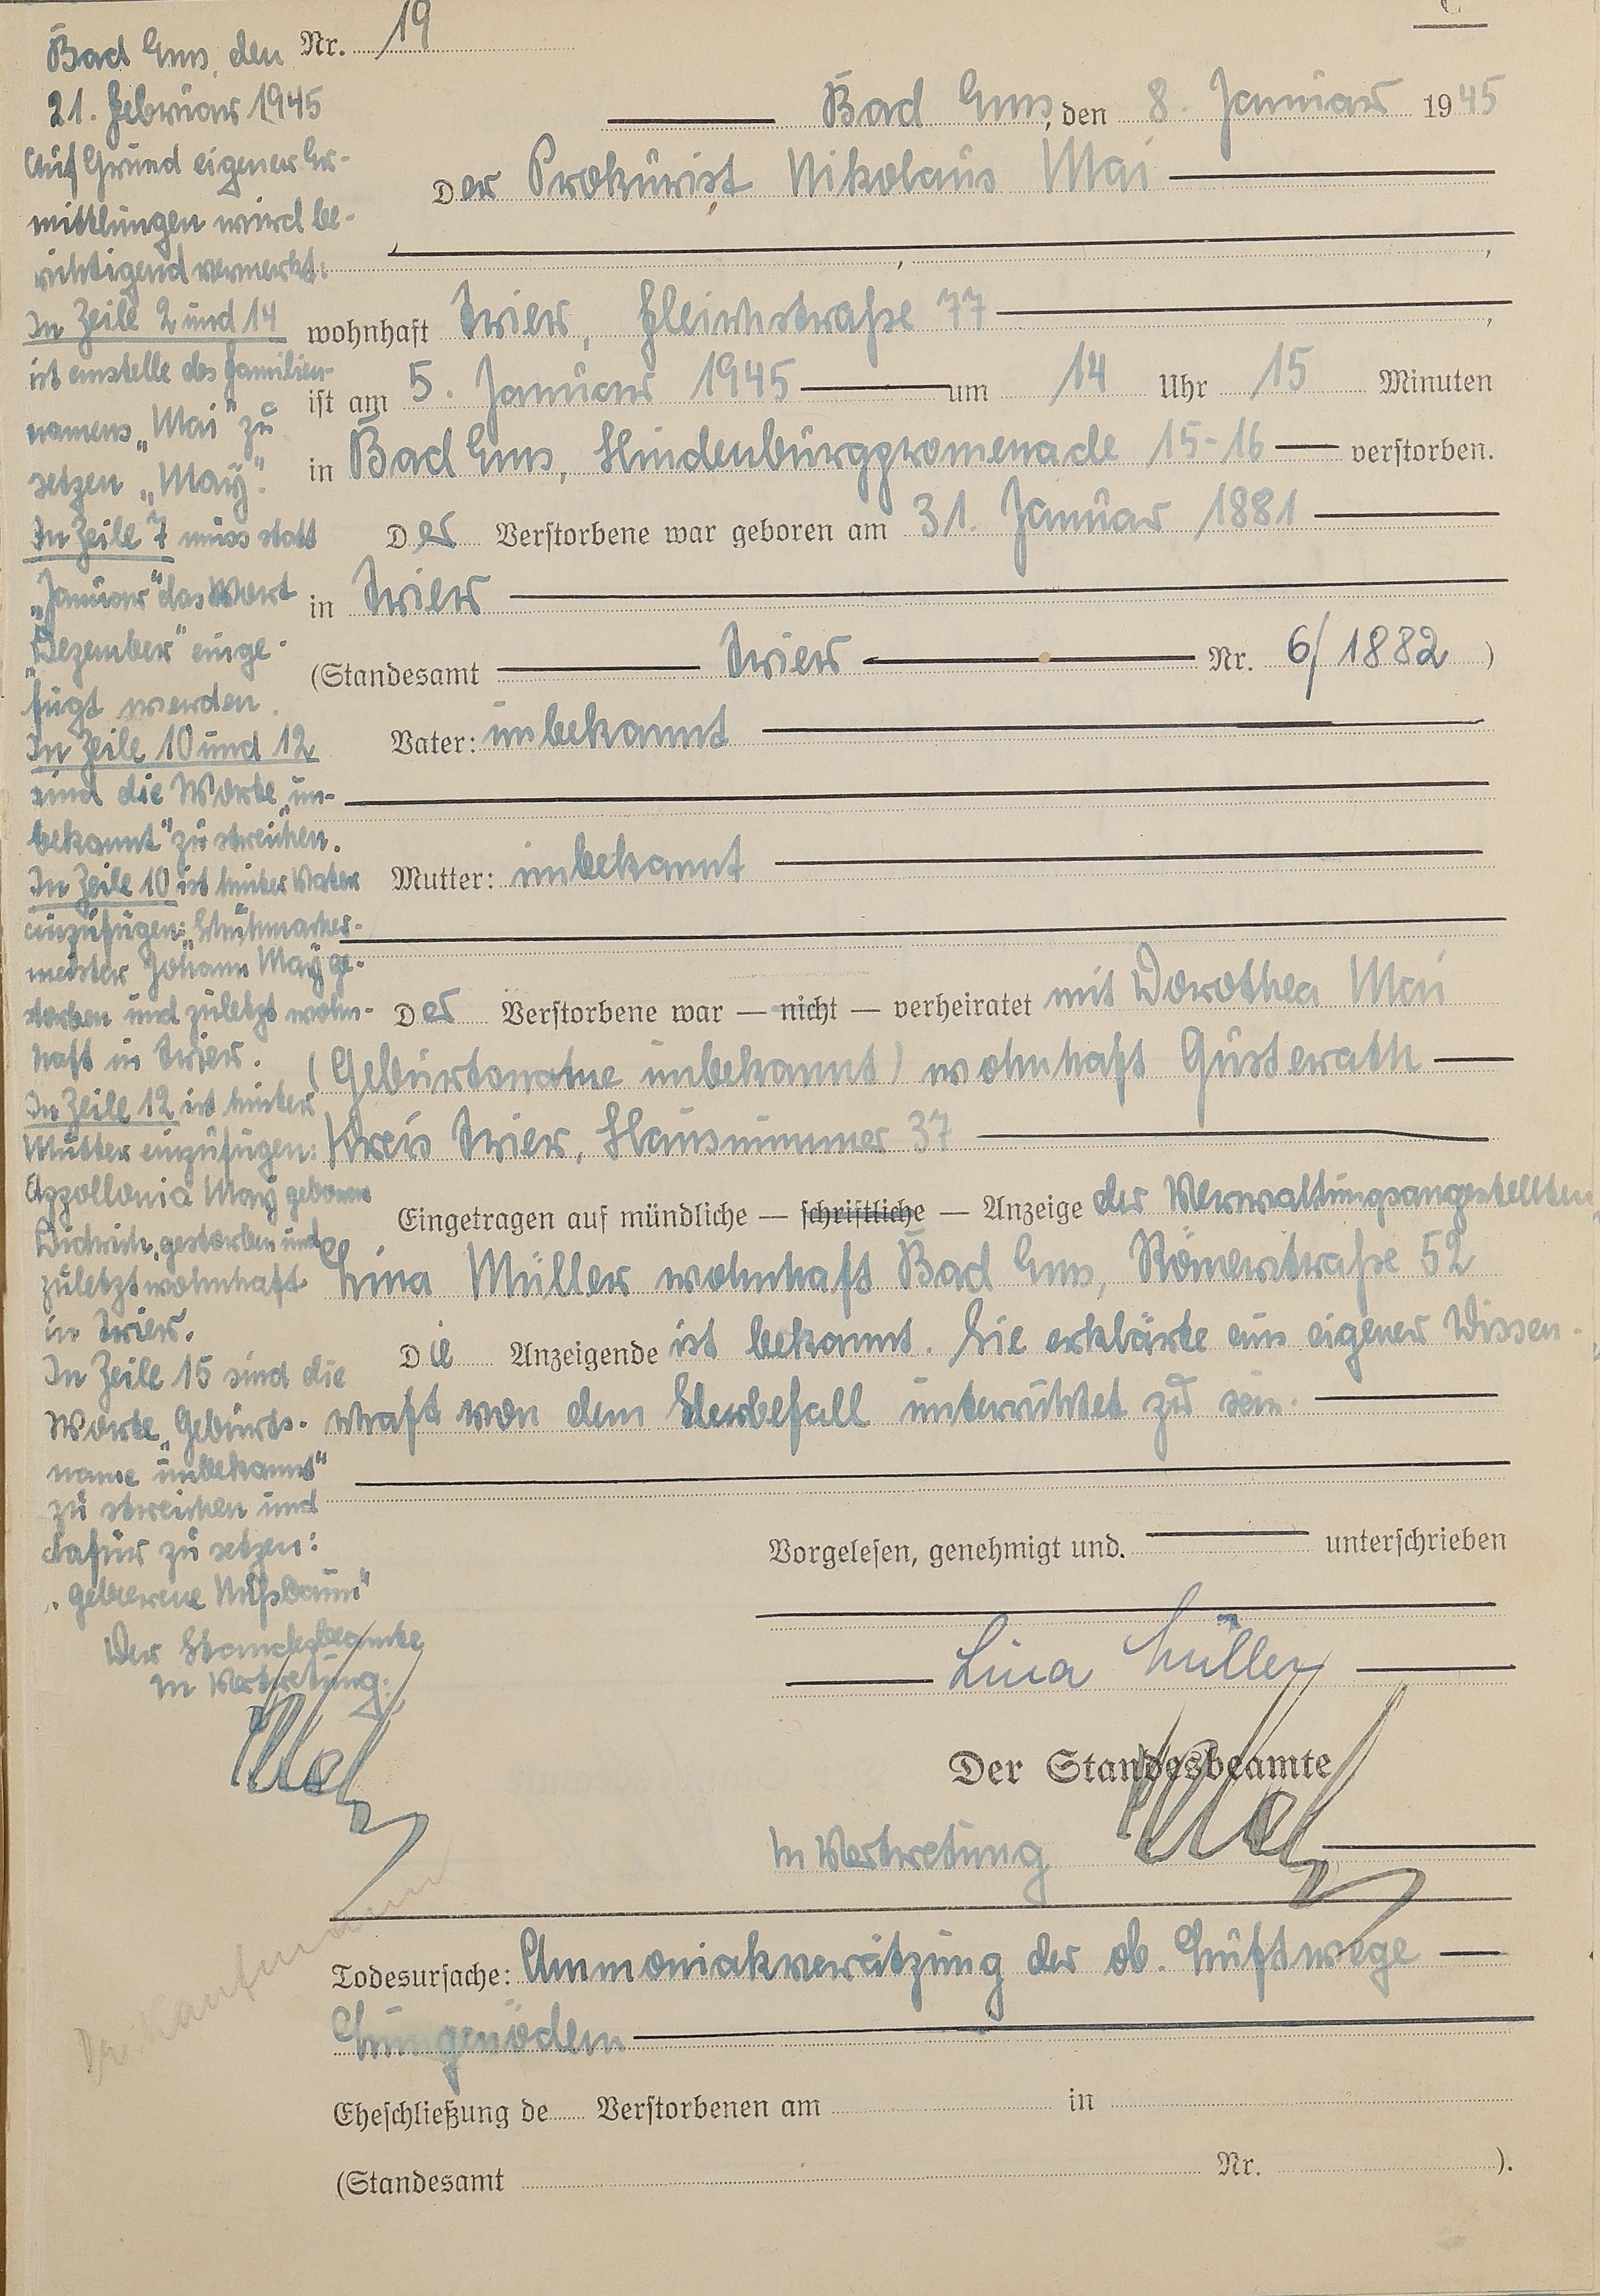 Nr. 19
C
Bad Ems, den 8. Januar 1945
Der Prokurist Nikolaus Mai
wohnhaft Trier, Fleischstraße 77
ist am 5. Januar 1945 um 14 Uhr 15 Minuten
in Bad Ems, Hindenburgpromenade 15-16 verstorben.
Der Verstorbene war geboren am 31. Januar 1881
in Trier
(Standesamt Trier Nr. 6/1882)
Vater: unbekannt
Mutter: unbekannt
Der Verstorbene war — nicht — verheiratet mit Dorothea Mai
(Geburtsname unbekannt) wohnhaft Gusterath
Kreis Trier, Hausnummer 37
Eingetragen auf mündliche — schriftliche — Anzeige der Verwaltungsangestellten
Lina Müller wohnhaft Bad Ems, Römerstraße 52
Die Anzeigende ist bekannt. Sie erklärte aus eigener Wissen-
schaft von dem Sterbefall unterrichtet zu sein.
Vorgelesen, genehmigt und unterschrieben
Lina Müller
Der Standesbeamte
In Vertretung
Todesursache: Ammoniakverätzung der ob. Luftwege
Lungenödem
Eheschließung de Verstorbenen am in
(Standesamt Nr. ).
Bad Ems, den
21. Februar 1945
Auf Grund eigener Er-
mittlungen wird be-
richtigend vermerkt:
In Zeile 2 und 14
ist anstelle des Familien-
namens „Mai" zu
setzen „May".
In Zeile 7 muss statt
„Januar" das Wort
„Dezember" einge-
fügt werden.
In Zeile 10 und 12
sind die Worte „un-
bekannt" zu streichen.
In Zeile 10 ist hinter Vater
einzufügen: Schuhmacher-
meister Johann May ge-
storben und zuletzt wohn-
haft in Trier.
In Zeile 12 ist hinter
Mutter einzufügen:
Appollonia May geborene
gestorben und
zuletzt wohnhaft
in Trier.
In Zeile 15 sind die
Worte „Geburts-
name unbekannt"
zu streichen und
dafür zu setzen:
„geborene Nußbaum"
Der Standesbeamte
In Vertretung: